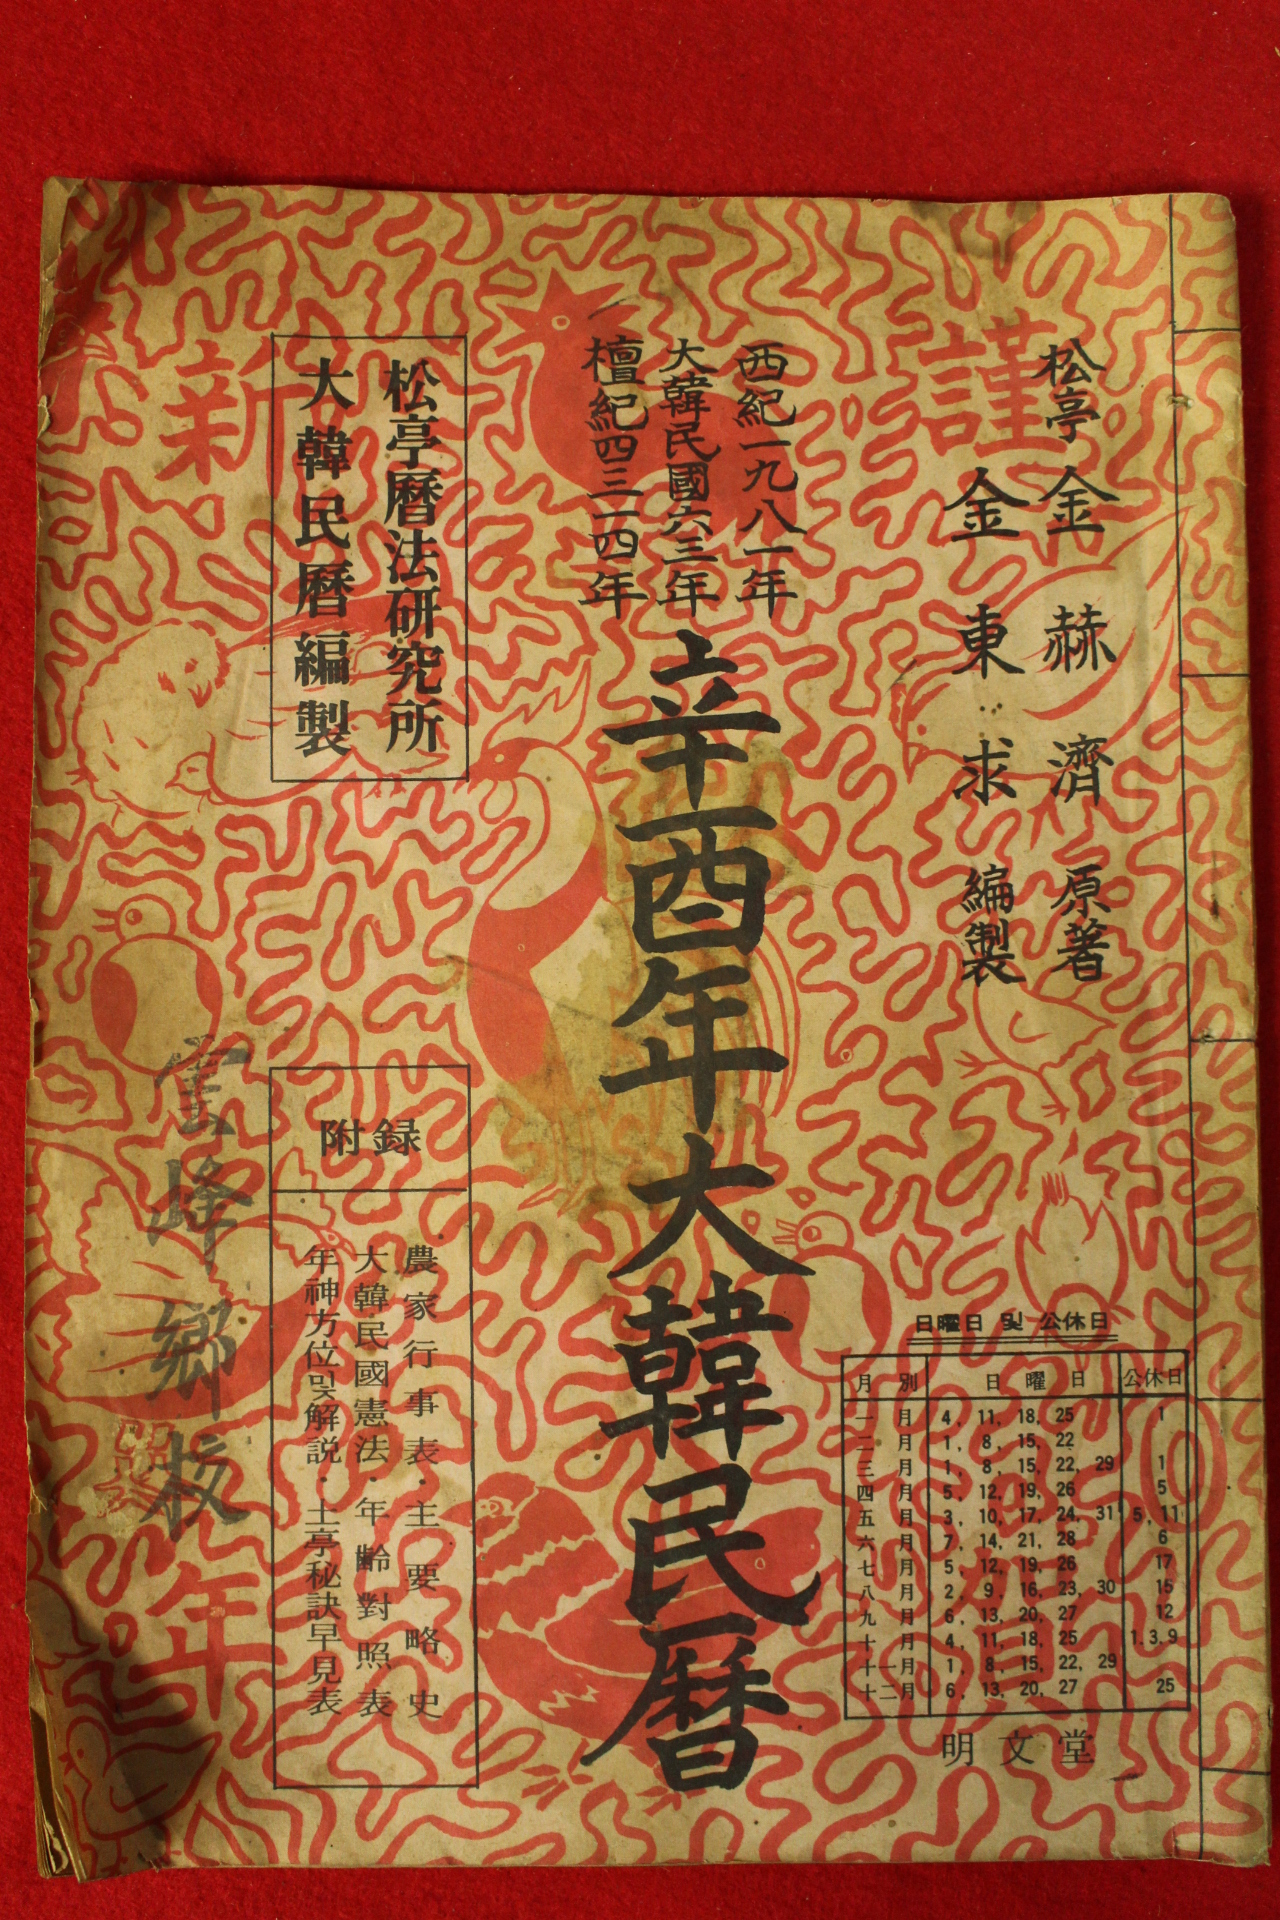 謹賀
新年
松亭 金赫濟 原著
金東求 編製
西紀一九八一年
大韓民國六三年
檀紀四三一四年
辛酉年大韓民曆
松亭曆法研究所
大韓民曆編製
附錄
農家行事表·主要略史
大韓民國憲法·年齡對照表
年神方位및解説·土亭秘訣早見表
雲峰鄉校
日曜日 및 公休日
月別 日曜日 公休日
一月 4, 11, 18, 25 1
二月 1, 8, 15, 22
三月 1, 8, 15, 22, 29 1
四月 5, 12, 19, 26 5
五月 3, 10, 17, 24, 31 5, 11
六月 7, 14, 21, 28 6
七月 5, 12, 19, 26 17
八月 2, 9, 16, 23, 30 15
九月 6, 13, 20, 27 12
十月 4, 11, 18, 25 1. 3. 9
十一月 1, 8, 15, 22, 29
十二月 6, 13, 20, 27 25
明文堂